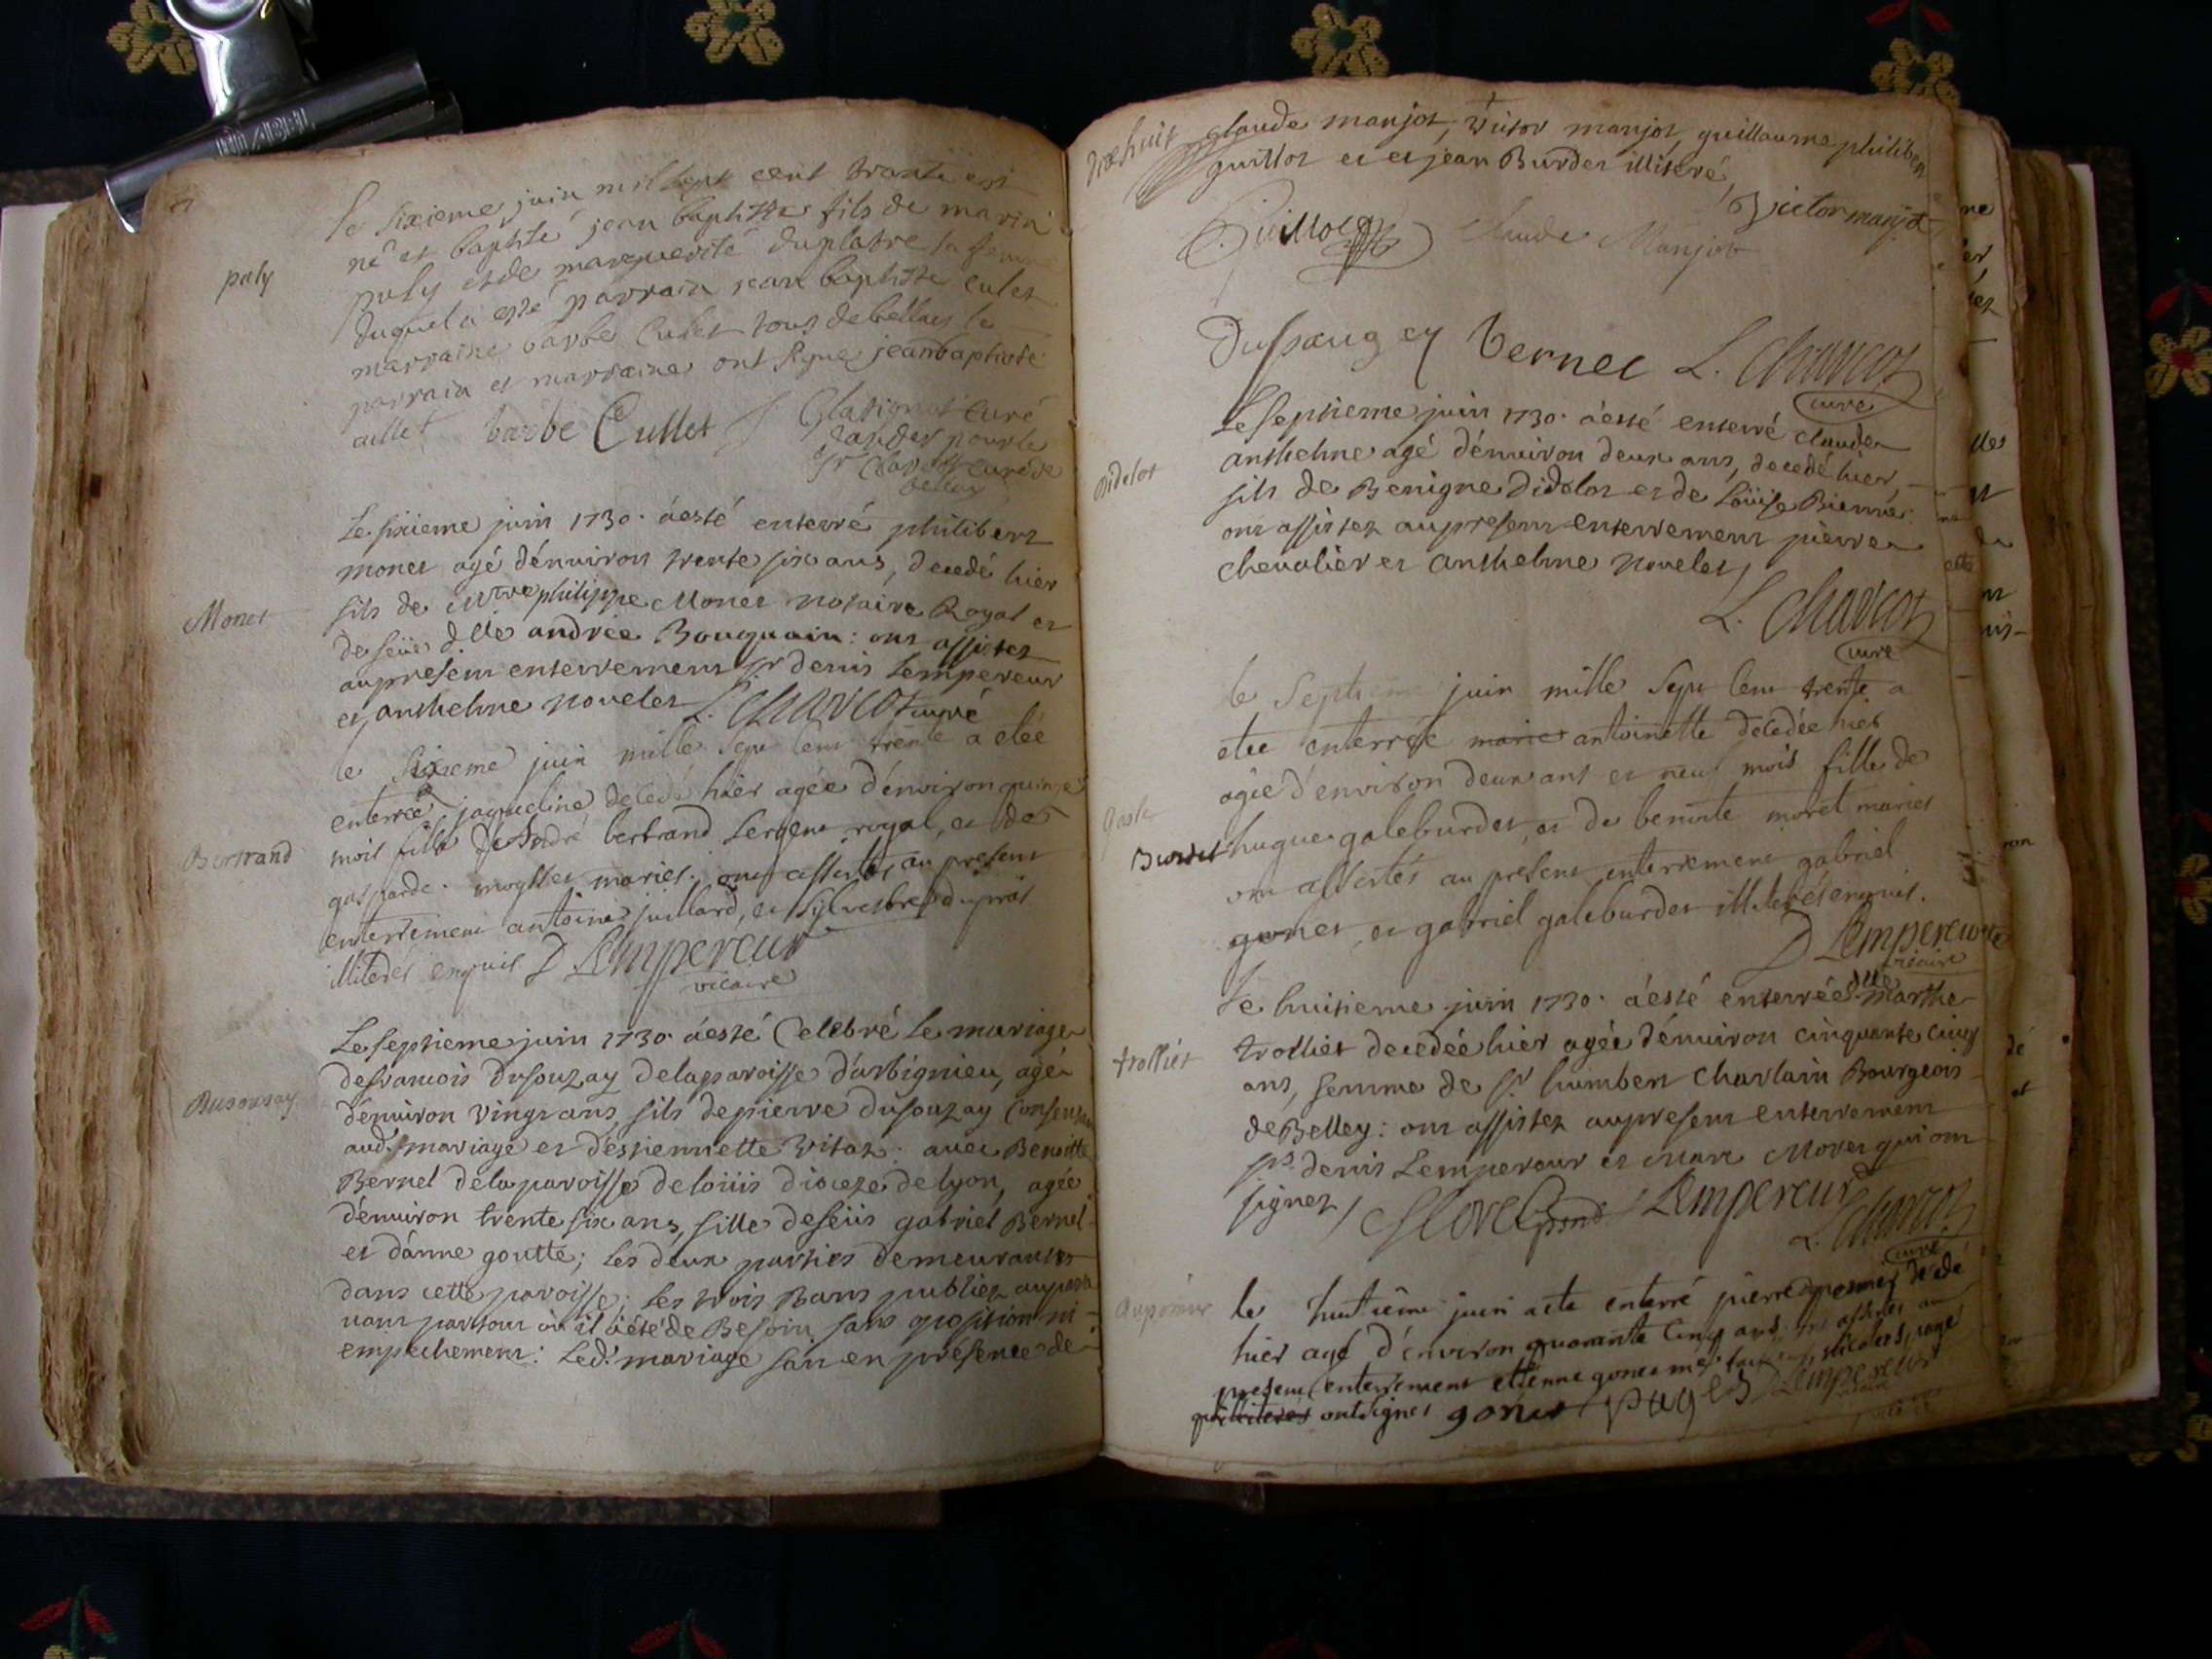 Le sixieme juin mil sept cent trante est
né et baptisé jean baptiste fils de marin
puly
puly et de marguerite duplatre sa femme
duquel a esté parrain jean baptiste culet
marraine barbe Culet tous de bellay le
parrain et marraine ont signe jeanbaptiste
cullet barbe Cullet
curé
pour le
Sr Charcot curé de
bellay
Le sixieme juin 1730. á esté enterré philibert
monet agé d'enuiron trente six ans, decedé hier
Monet
fils de Mtre philippe Monet notaire Royal et
de feüe dlle andrée Bouguain: ont assistez
au present enterrement Sr denis Lempereur
et anthelme nouelet L. Charcot curé
le sixieme juin mille sept cent trente a etée
enterrée jaqueline decedé hier agée d'enoiron quinze
Bertrand
mois fille de André bertrand sergent royal, et de
gasparde moyllet mariés. ont assistés au present
enterrement antoine juillard, et sylvestre dupras
illiterés enquis. D Lempereur
vicaire
Le septieme juin 1730. á esté Celebré Le mariage
de francois dusouzay de la paroisse d'arbignieu, agé
Dusousay
d'enuiron vingt ans, fils de pierre dusouzay Consentant
aud. mariage et d'estiennette vitoz: auec Benoitte
Bernel de la paroisse de loüiis dioceze de lyon, agée
d'enuiron trente six ans, fille de feüis gabriel Bernel
et d'anne goutte; les deux parties demeurantes
dans cette paroisse; les trois Bans publiez aupara
uant partout où il a été de Besoin sans oposition ni
empechement: Led. mariage fait en présence de
claude manjot, victor manjot, guillaume philibert
guillot et et jean Burdet illiteré,
Victor manjot
Guillot Claude Manjot
Dusaugey Vernee L. Charcot
curé
Le septieme juin 1730. á esté enterré claude
anthelme agé d'enuiron deux ans, decedé hier,
Didelot
fils de Benigne Didelot et de Loüise
ont assistez au present enterrement pierre
chevalier et anthelme nouelet
L. Charcot
curé
le Septieme juin mille sept cent trente a
etee enterrée marie antoinette decedée hier
agée d'environ deux ans et neuf mois fille de
Burdet hugue galeburdet, et de benoite moret mariés
ont assistés au present enterrement gabriel
gonet, et gabriel galeburdet illiterés enquis.
D Lempereur
vicaire
Le huitieme juin 1730. á esté enterrée dlle Marthe
trollier
trollier decedée hier agée d'enuiron cinquante cinq
ans, femme de Sr humbert Charlain Bourgeois
de Belley: ont assistez au present enterrement
Srs denis Lempereur et Marc Moret qui ont
signez / Moret Lempereur
L. Charcot
curé
le huitieme juin a ete enterré pierre decedé
hier agé d'environ quarante cinq ans, ont assistes au
present enterrement etienne gonet
illiterés ont signes gonet pages D Lempereur